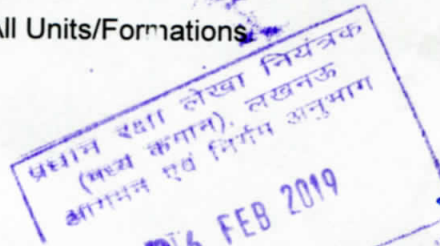 All Units/Formations
प्रधान रक्षा लेखा नियंत्रक
(मध्य कमान), लखनऊ
आगमन एवं निर्गम अनुभाग
FEB 2019